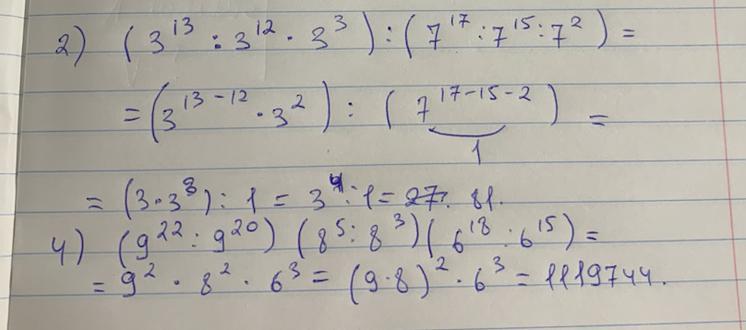 2) (3¹³ : 3¹² · 3³) : (7¹⁷ : 7¹⁵ : 7²) =
= (3¹³⁻¹² · 3²) : (7¹⁷⁻¹⁵⁻²) =
1
= (3 · 3³) : 1 = 3⁴ : 1 = 27. 81.
4) (9²² : 9²⁰) (8⁵ : 8³) (6¹⁸ : 6¹⁵) =
= 9² · 8² · 6³ = (9 · 8)² · 6³ = 1119744.